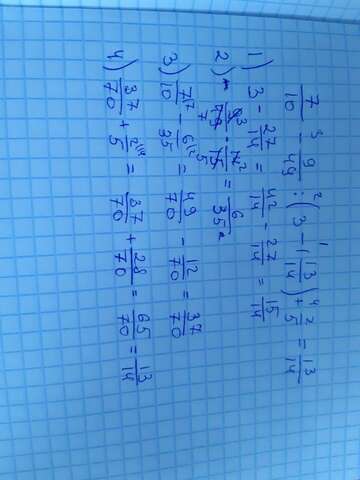 7/10 -³ 9/49 :² (3 -¹ 1 13/14) +⁴ 2/5 = 13/14
1) 3 - 27/14 = 42/14 - 27/14 = 15/14
2) 9³/49₇ · 14²/15₅ = 6/35
3) 7⁷/10 - 6²/35 = 49/70 - 12/70 = 37/70
4) 37/70 + 2¹⁴/5 = 37/70 + 28/70 = 65/70 = 13/14